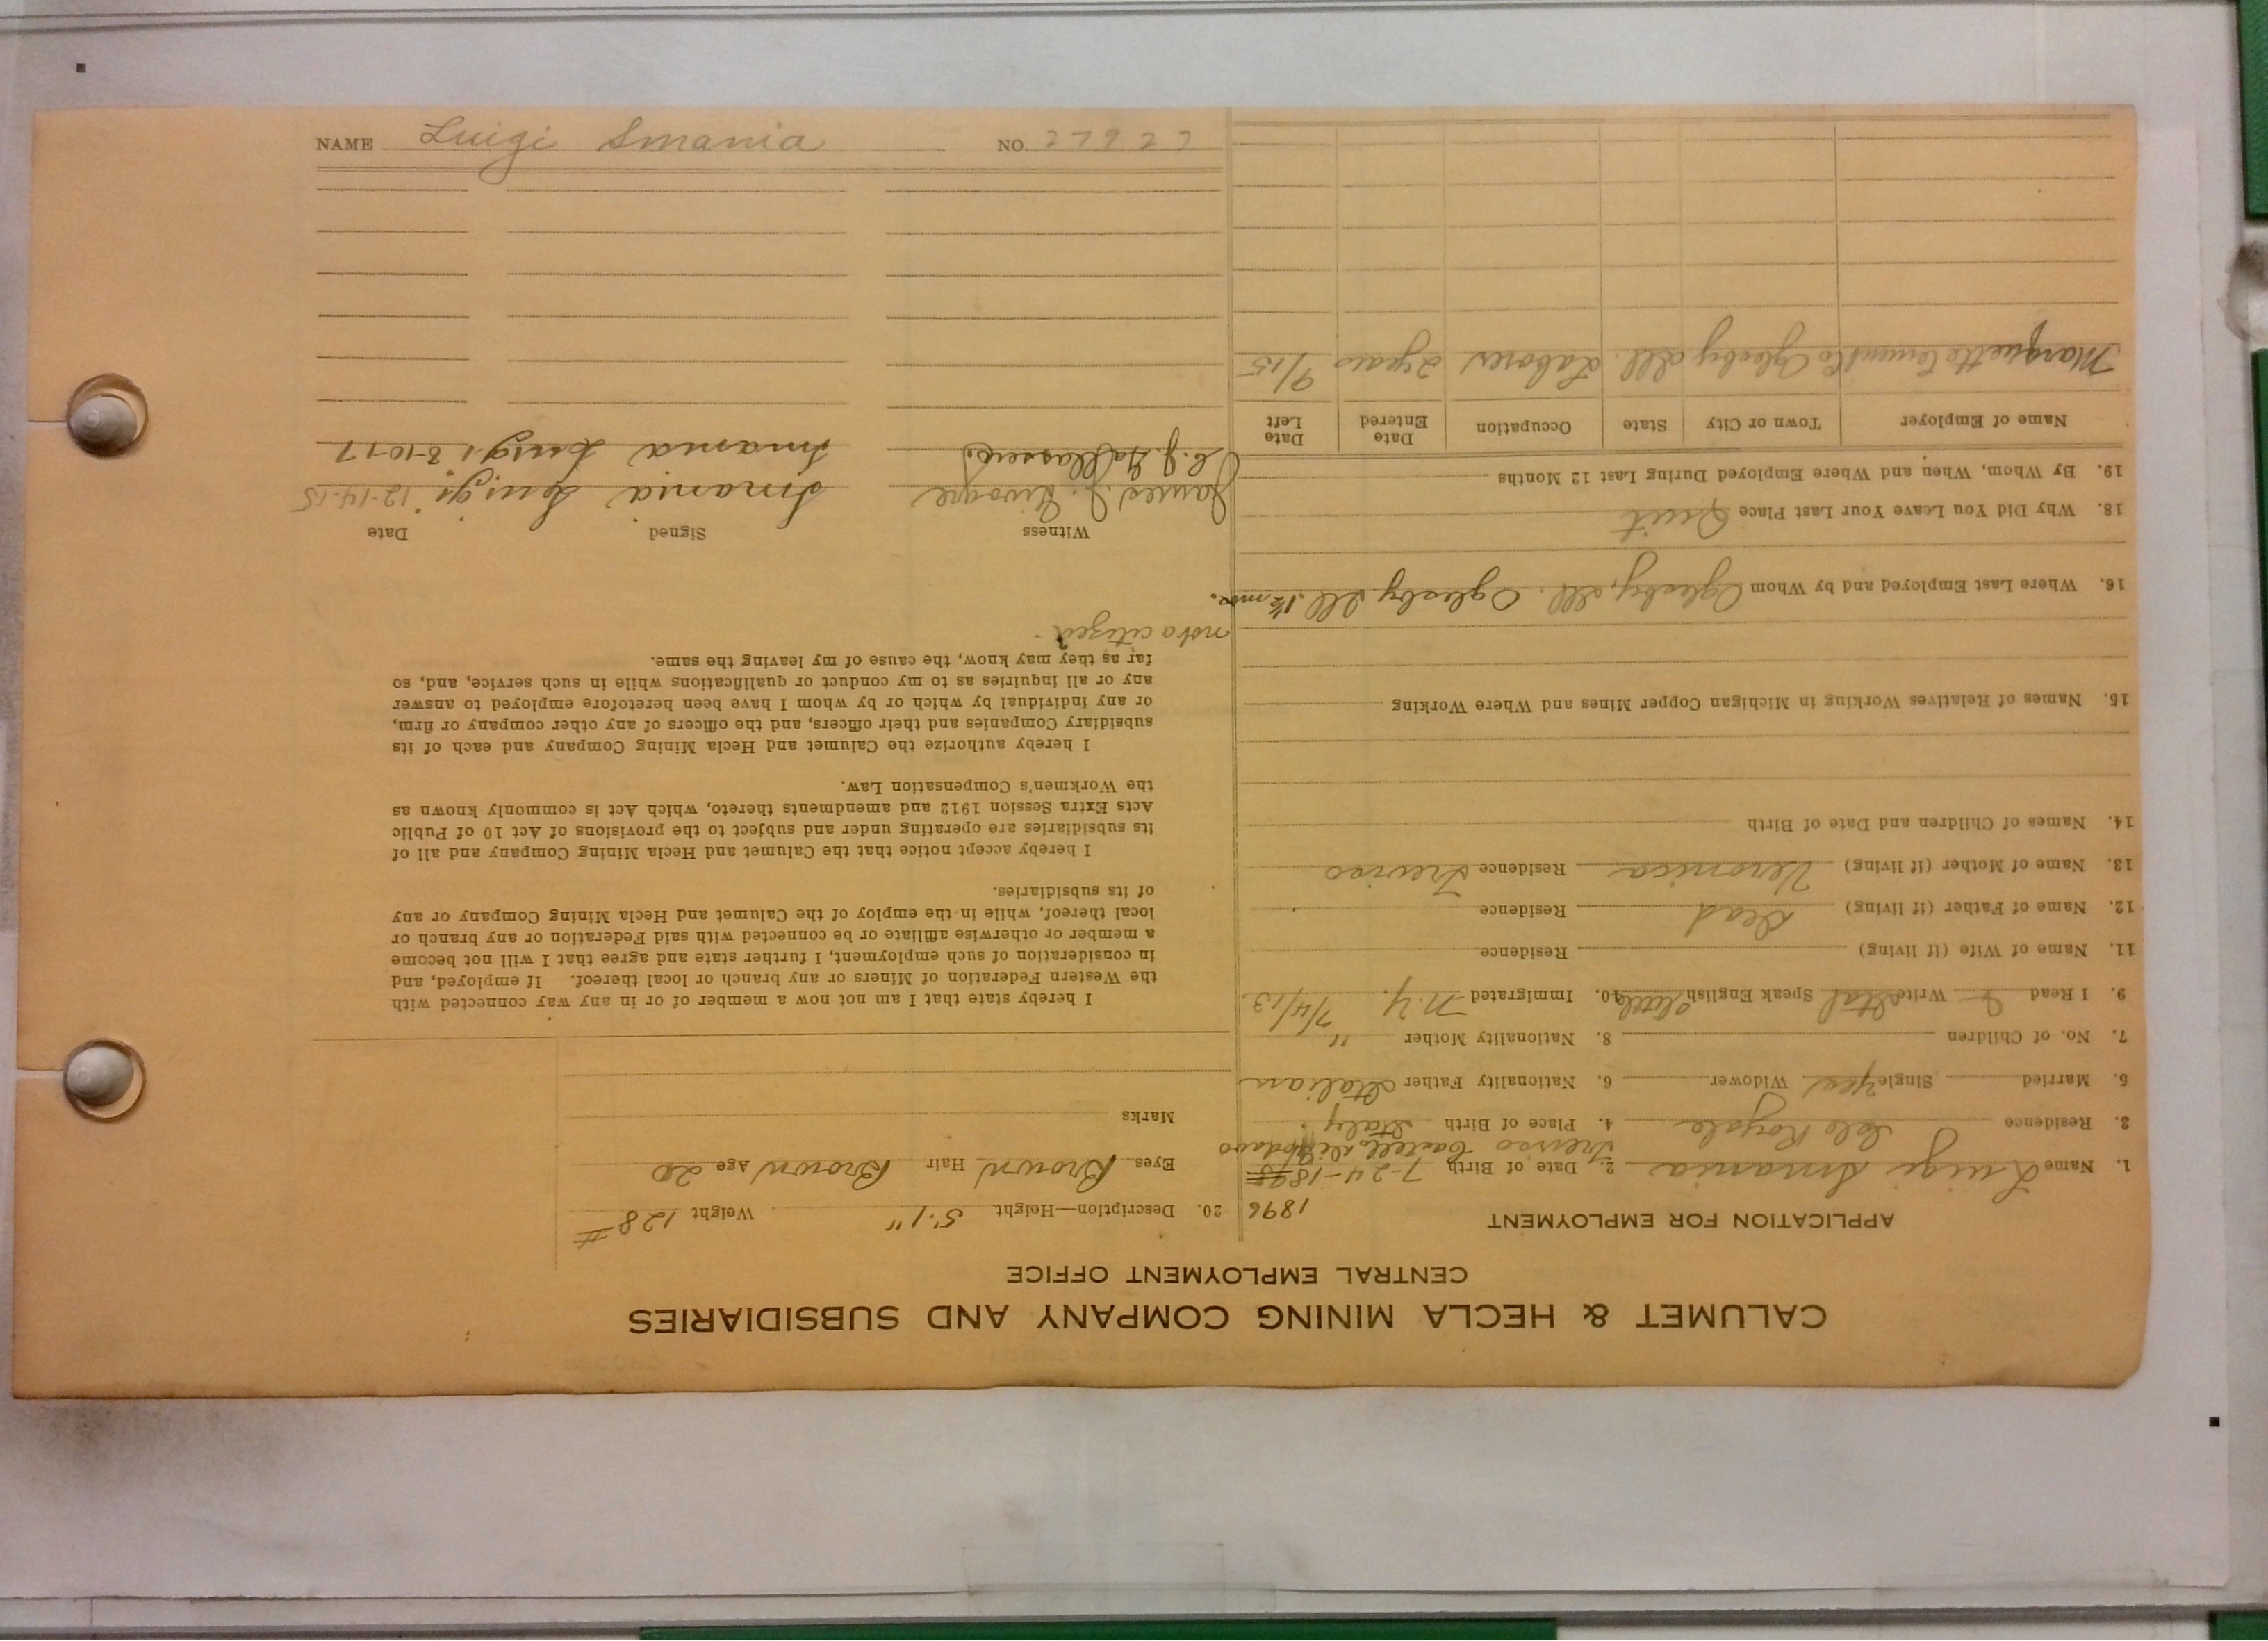 NAME Luigi Smania NO. 27927
CALUMET & HECLA MINING COMPANY AND SUBSIDIARIES
CENTRAL EMPLOYMENT OFFICE
APPLICATION FOR EMPLOYMENT
1896
1. Name Luigi Smania 2. Date of Birth 7-24-1895
Treviso Castello Di
3. Residence Isle Royale 4. Place of Birth Italy
5. Married Single Yes Widower 6. Nationality Father Italian
7. No. of Children 8. Nationality Mother "
9. I Read & Write Ital Speak English Little 10. Immigrated N.Y. 7/4/13.
11. Name of Wife (if living) Residence
12. Name of Father (if living) Dead Residence
13. Name of Mother (if living) Veronica Residence Treviso
14. Names of Children and Date of Birth
15. Names of Relatives Working in Michigan Copper Mines and Where Working
16. Where Last Employed and by Whom Oglesby, Ill. Oglesby Ill. 1½ mos.
18. Why Did You Leave Your Last Place Quit
19. By Whom, When and Where Employed During Last 12 Months
Name of Employer Town or City State Occupation Date Entered Date Left
Marquette Cement Co Oglesby Ill. Laborer 2 years 9/15
20. Description—Height 5'.1" Weight 128 #
Eyes Brown Hair Brown Age 20
Marks
I hereby state that I am not now a member of or in any way connected with
the Western Federation of Miners or any branch or local thereof. If employed, and
in consideration of such employment, I further state and agree that I will not become
a member or otherwise affiliate or be connected with said Federation or any branch or
local thereof, while in the employ of the Calumet and Hecla Mining Company or any
of its subsidiaries.
I hereby accept notice that the Calumet and Hecla Mining Company and all of
its subsidiaries are operating under and subject to the provisions of Act 10 of Public
Acts Extra Session 1912 and amendments thereto, which Act is commonly known as
the Workmen's Compensation Law.
I hereby authorize the Calumet and Hecla Mining Company and each of its
subsidiary Companies and their officers, and the officers of any other company or firm,
or any individual by which or by whom I have been heretofore employed to answer
any or all inquiries as to my conduct or qualifications while in such service, and, so
far as they may know, the cause of my leaving the same.
not a citizen.
Witness Signed Date
James J. Smania Luigi 12-14-15
Smania Luigi 8-10-17